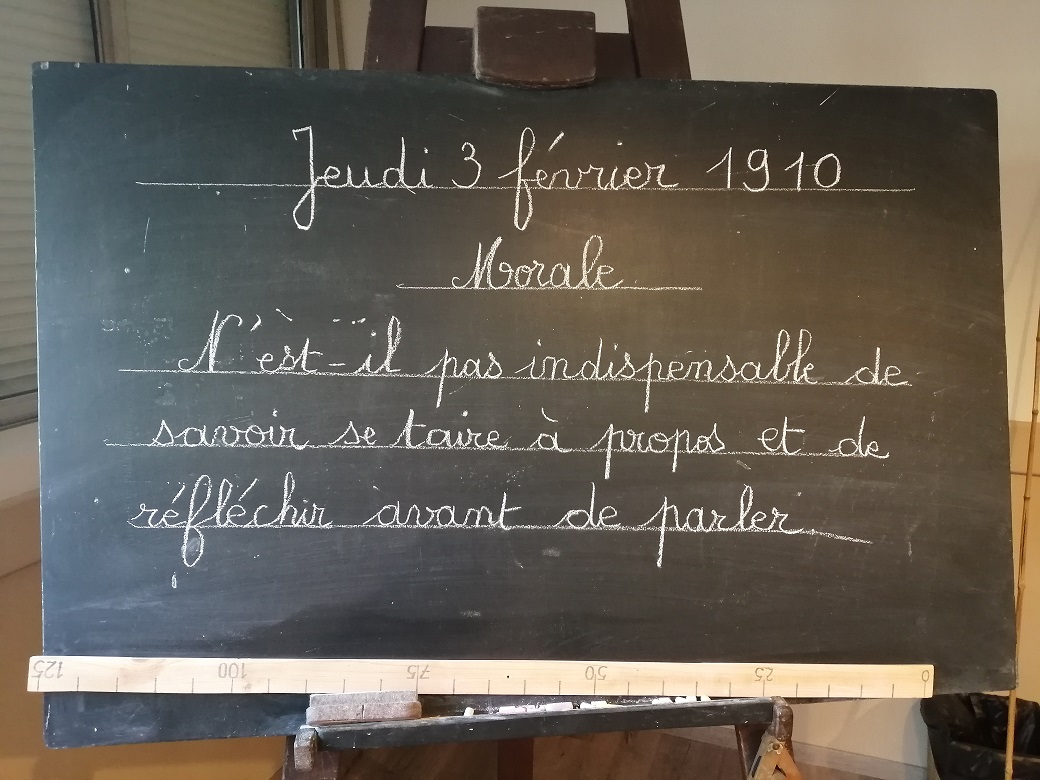 Jeudi 3 février 1910
Morale
N'est-il pas indispensable de
savoir se taire à propos et de
réfléchir avant de parler
125 100 75 50 25 0